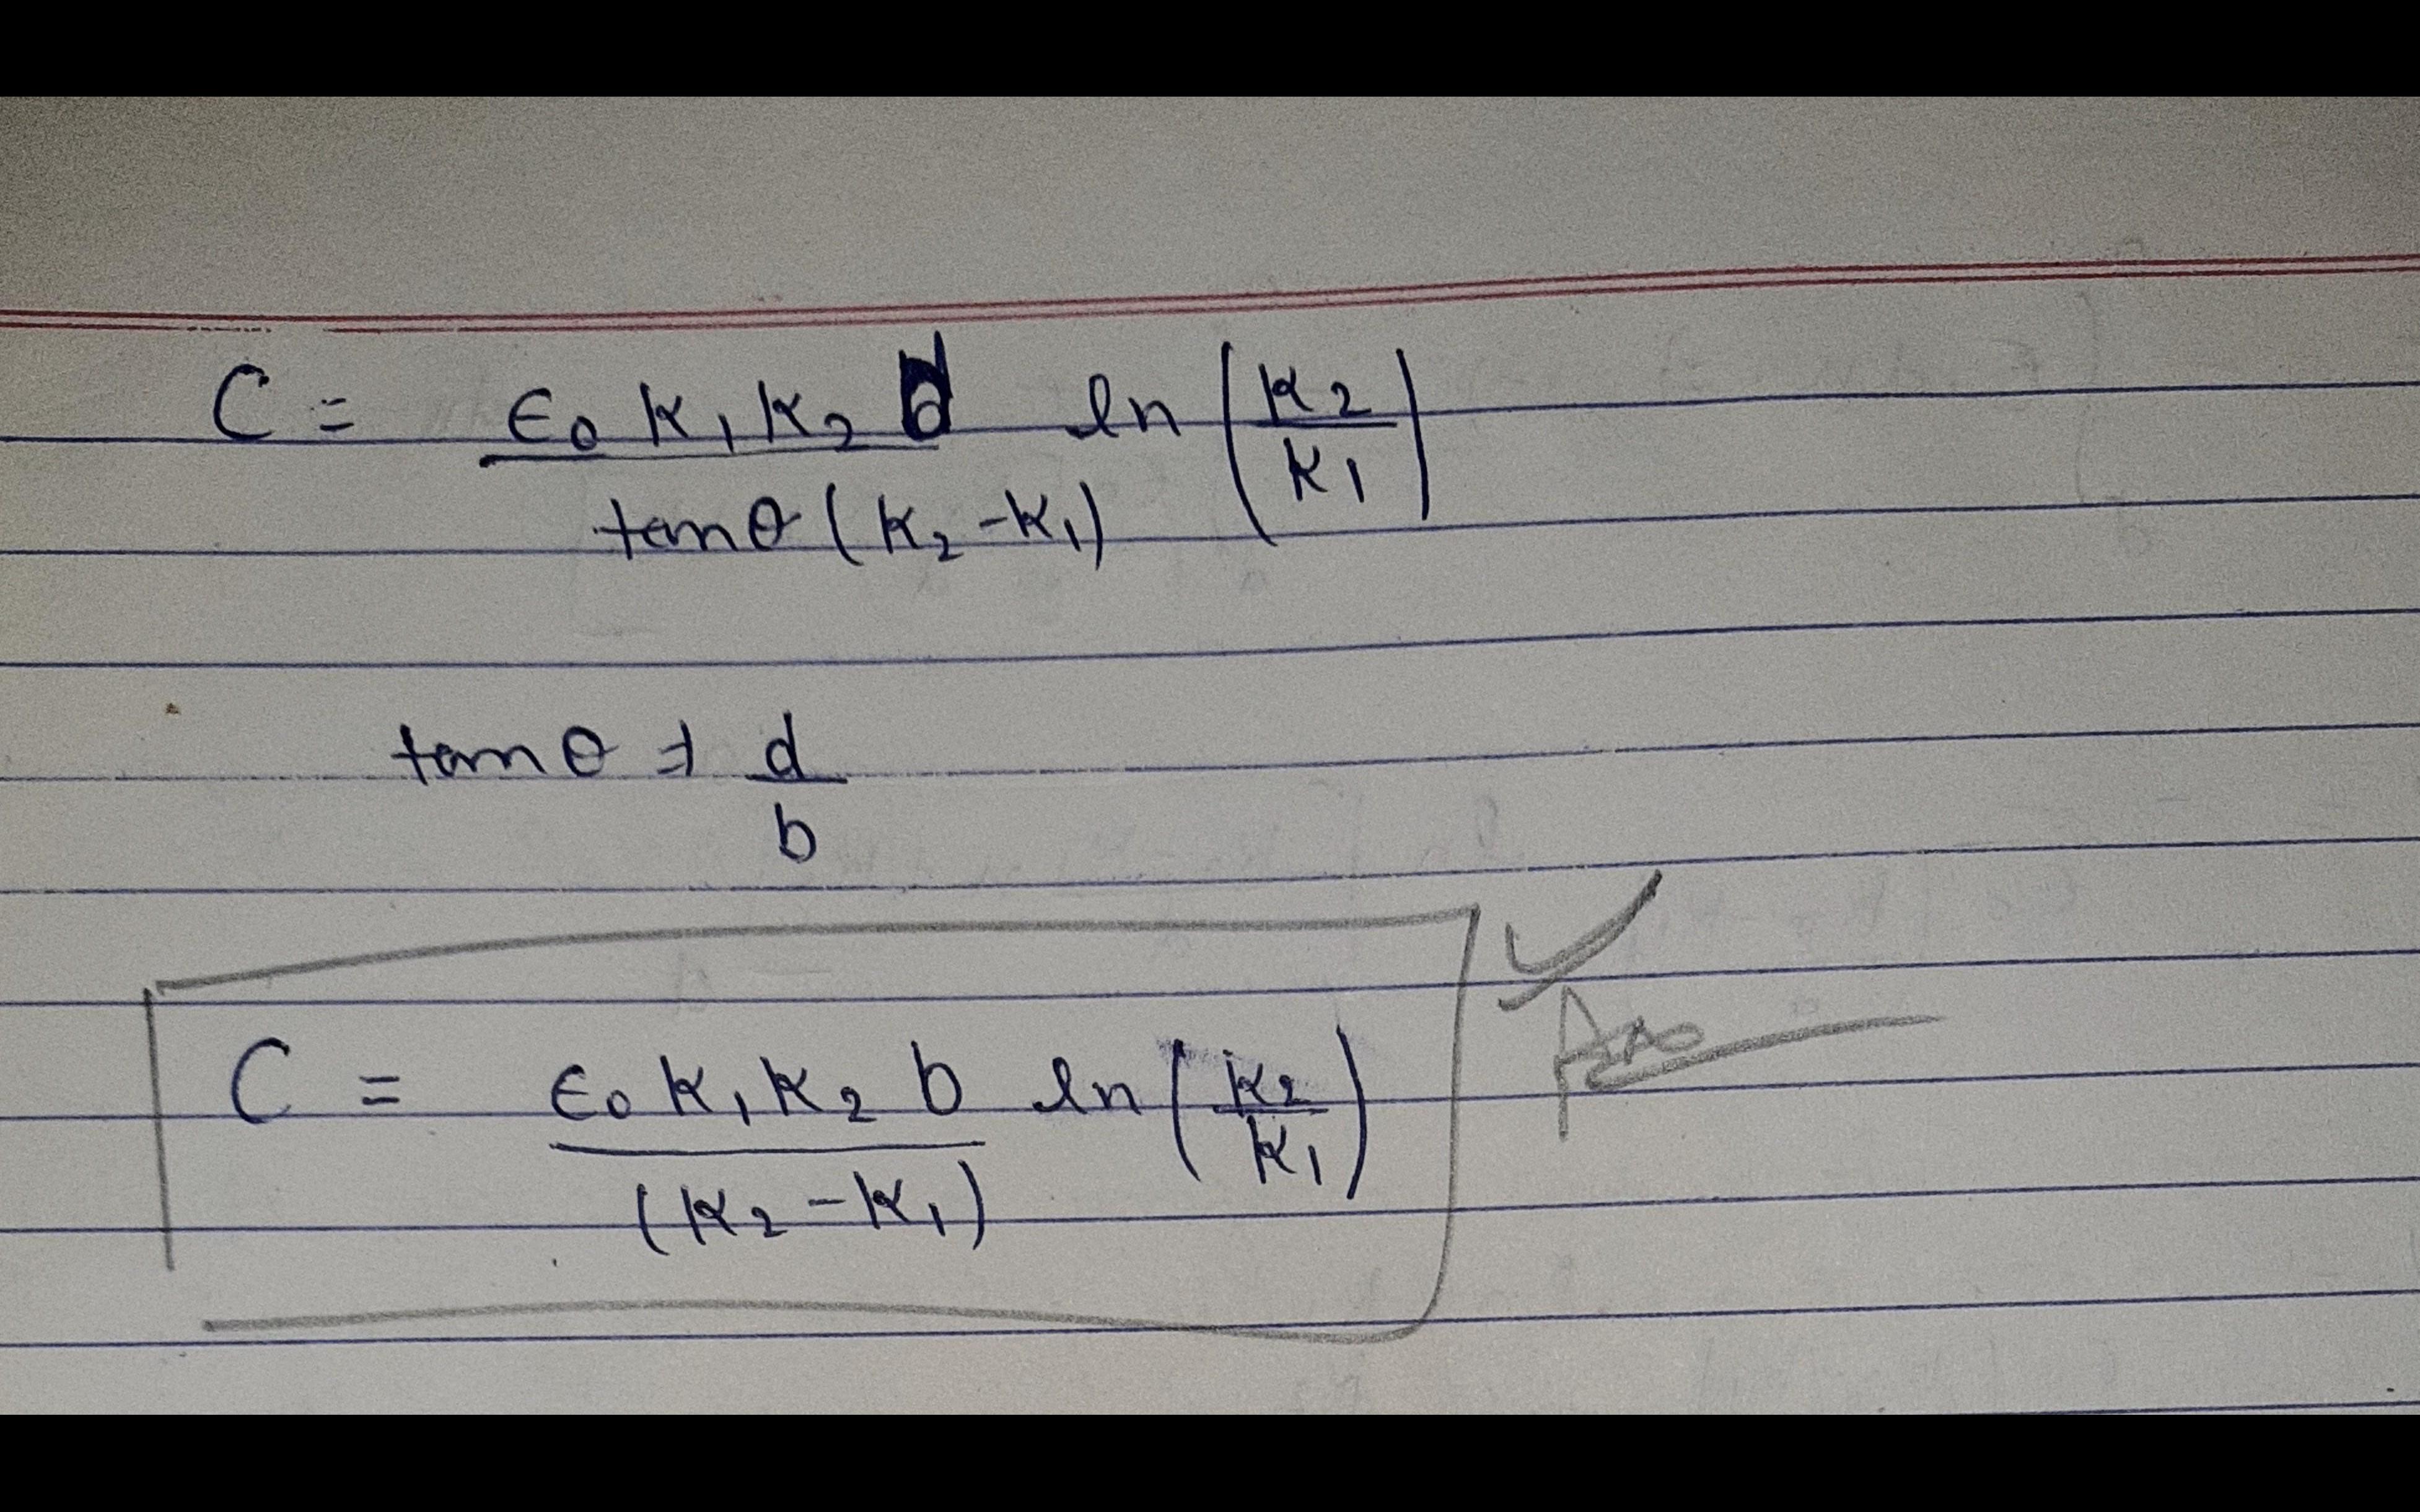 C = ε₀ K₁ K₂ b / tanθ (K₂ - K₁) ln (K₂ / K₁)
tanθ ⇒ d / b
C = ε₀ K₁ K₂ b / (K₂ - K₁) ln (K₂ / K₁)
Ans